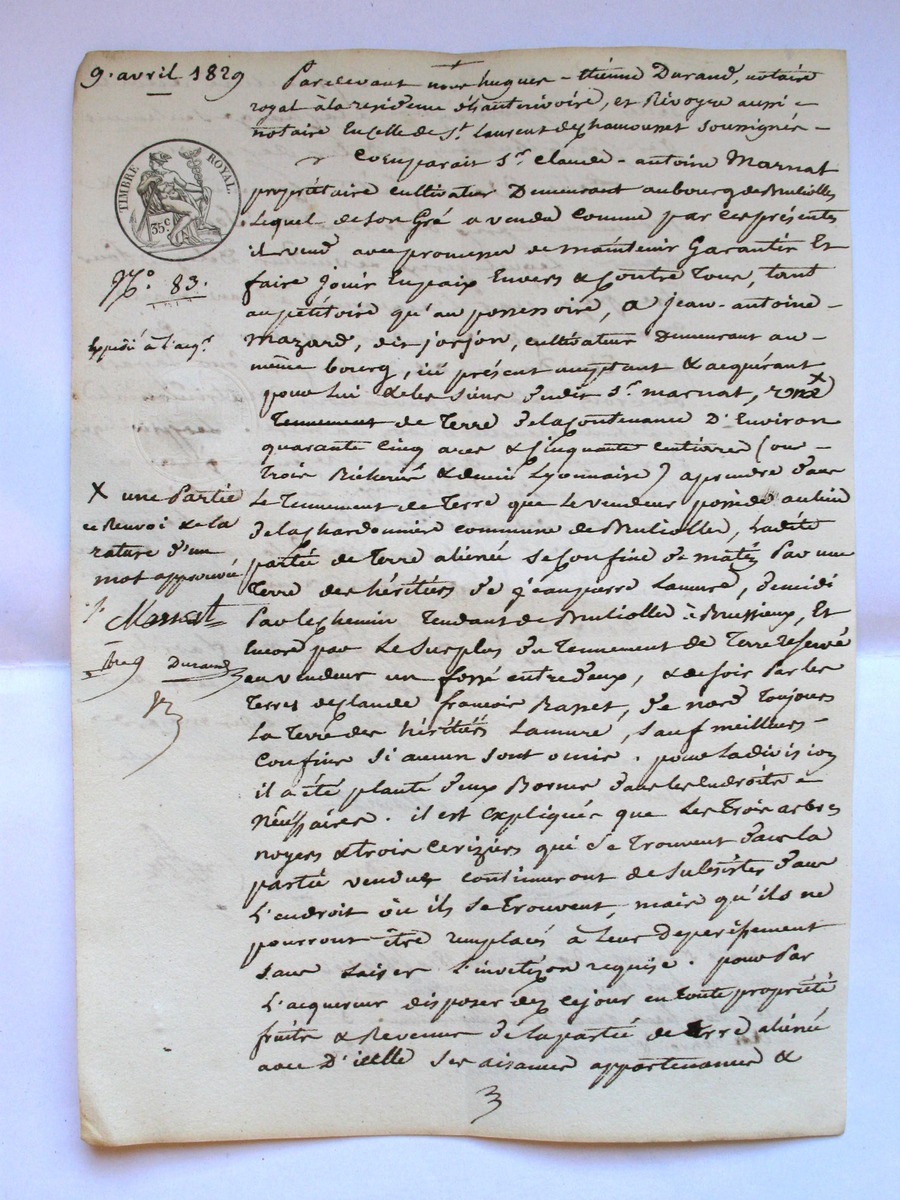 9. avril 1829
TIMBRE ROYAL.
35c
No. 83.
Expédié à l'acqr
X une Partie
ce Renvoi & la
rature d'un
mot approuvé
Marnat
Durand
Pardevant mtres hugues-étienne Durand, notaire
royal a la residence et Rivoyre aussi
notaire en celle de St. Laurent de chamousset soussignés
Comparait Sr. claude-antoine Marnat
propriétaire cultivateur Demeurant au bourg de Bruliolles
Lequel de son Gré a vendu comme par ces présentes
il vend avec promesse de maintenir Garantir Et
faire Jouir En paix Envers & Contre Tous, tant
au petitoire qu'au possessoire, a jean-antoine-
Mazard, dit jorjon, cultivateur Demeurant au
même bourg, ici présent acceptant & acquérant
pour Lui & les siens dudit Sr. marnat, X
Tennement de Terre de la Contenance D'Environ
quarante Cinq ares & Cinquante centiares (ou
Trois Bicherées & demi Lyonnaise) a prendre dans
Le Tennement de Terre que le vendeur possède au lieu
de la chardonnière commune de Brulioller, Ladite
partie de Terre aliénée se Confine de matin Par une
Terre des héritiers de jean pierre Lamure, de midi
Par le chemin Tendant de Brulioller à Brussieux, Et
Encore par Le Surplus du Tennement de Terre réservé
au vendeur un fossé entre deux, & de soir Par les
Terres de claude françois Rasset, de nord Toujours
La Terre des héritiers Lamure, Sauf meilleurs
Confins Si aucun sont omis. pour La division
il a été planté deux Bornes dans les Endroits
Néssaires. il est Expliqués que Les Trois arbres
noyers & trois Ceriziers qui se Trouvent dans La
partie vendues continueront de subsister dans
L'endroit ou ils se trouvent, mais qu'ils ne
pourront être remplacés à Leur Deperissement
sans Laisser L'invetizon requise. pour Par
L'acquereur disposer dez ce jour en toute propriété
fruits & Revenus de la partie de Terre aliénée
avec D'icelle ses aisances appartenances &